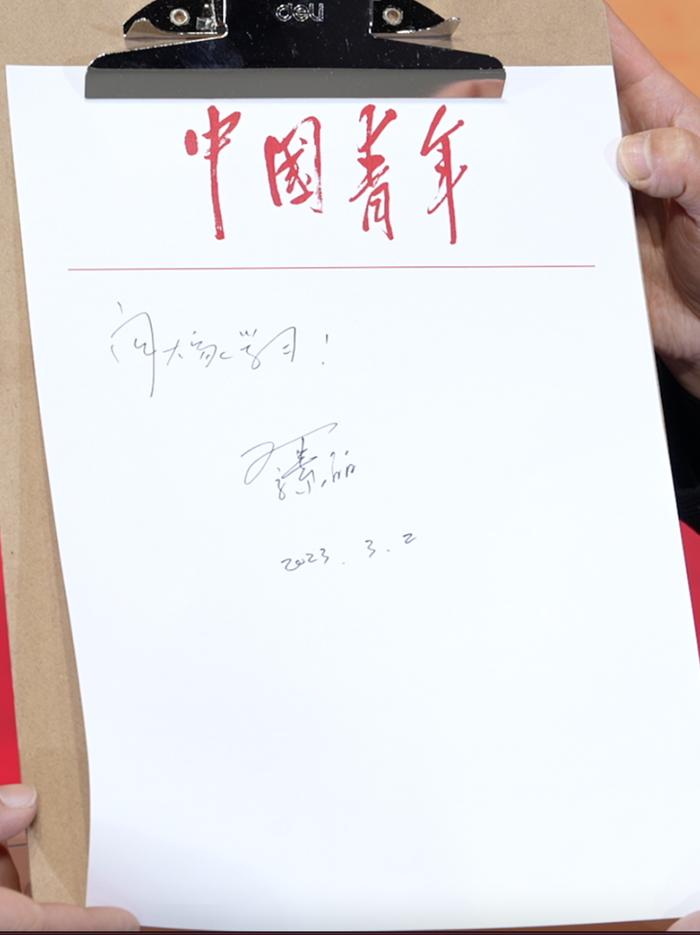 deli
中国青年
向大家学习！
2023.3.2